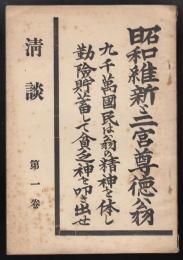 昭和維新と二宮尊徳翁
九千萬國民は翁の精神を体し
勤險貯蓄して貧乏神を叩き出せ
清談
第一卷